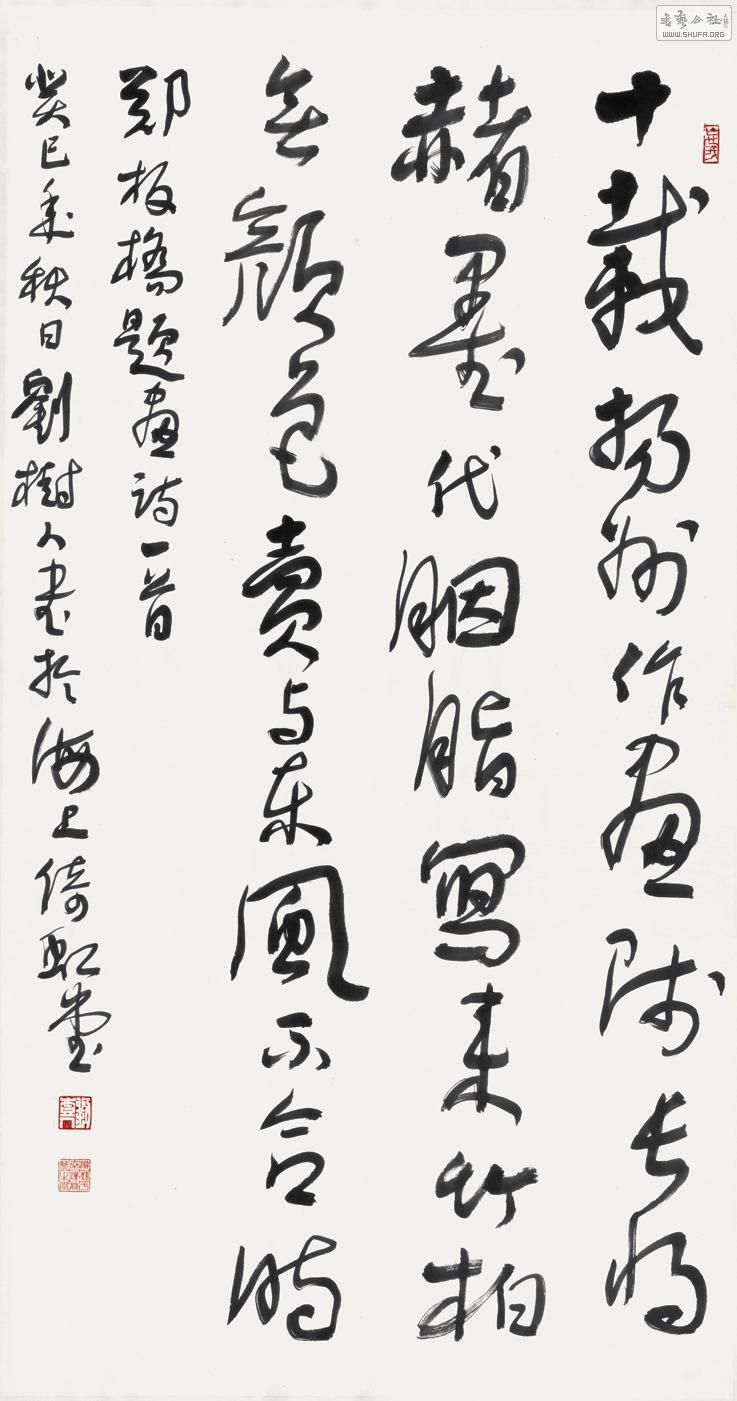 十載揚州作畫師長將
赭墨代胭脂寫來竹柏
無顏色賣与東風不合時
鄭板橋題畫詩一首
癸巳年秋日劉樹人書於海上倚虹堂
書藝公社
WWW.SHUFA.ORG